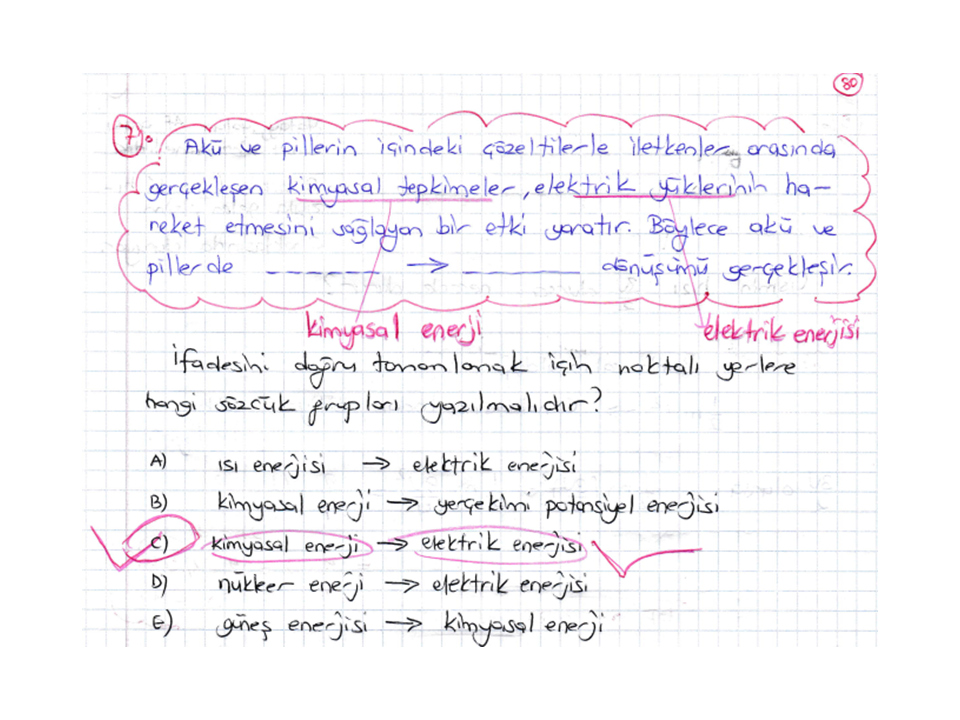 80
7. Akü ve pillerin içindeki çözeltilerle iletkenler arasında
gerçekleşen kimyasal tepkimeler, elektrik yüklerinin ha-
reket etmesini sağlayan bir etki yaratır. Böylece akü ve
pillerde ________ → ________ dönüşümü gerçekleşir.
kimyasal enerji elektrik enerjisi
ifadesini doğru tamamlamak için noktalı yerlere
hangi sözcük grupları yazılmalıdır?
A) ısı enerjisi → elektrik enerjisi
B) kimyasal enerji → yerçekimi potansiyel enerjisi
C) kimyasal enerji → elektrik enerjisi
D) nükleer enerji → elektrik enerjisi
E) güneş enerjisi → kimyasal enerji